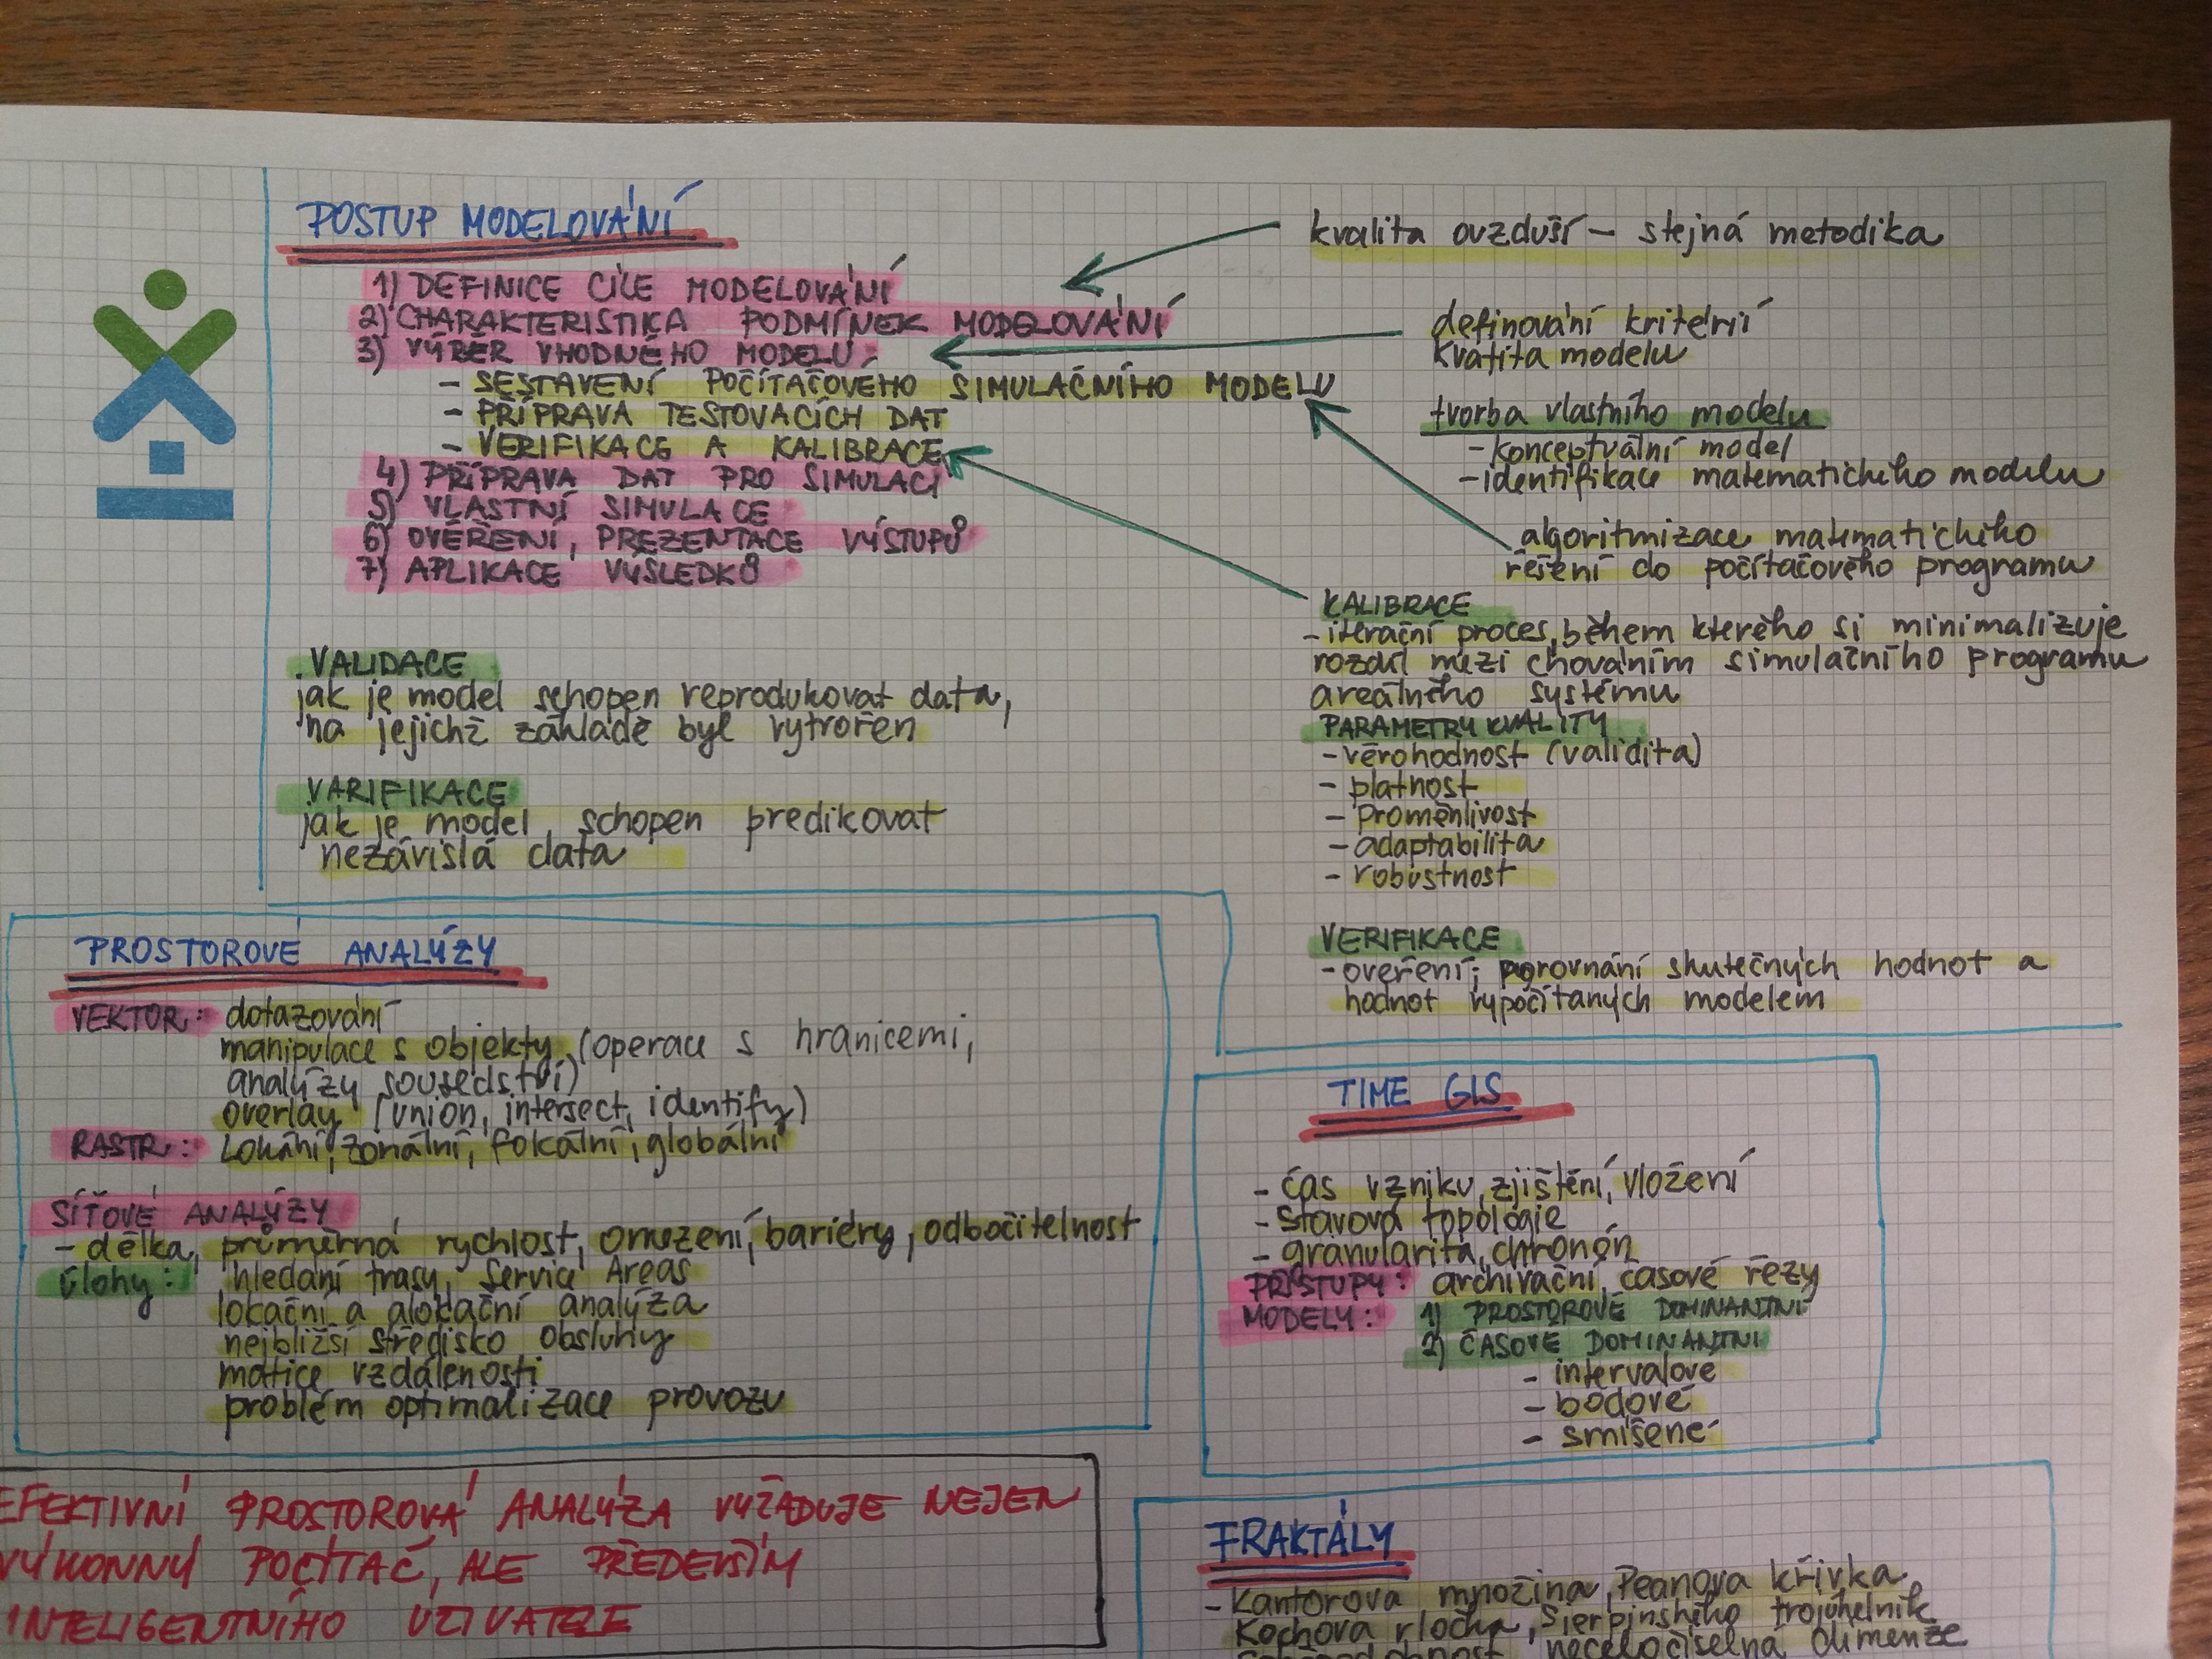 POSTUP MODELOVÁNÍ
1) DEFINICE CÍLE MODELOVÁNÍ
2) CHARAKTERISTIKA PODMÍNEK MODELOVÁNÍ
3) VÝBĚR VHODNÉHO MODELU
- SESTAVENÍ POČÍTAČOVÉHO SIMULAČNÍHO MODELU
- PŘÍPRAVA TESTOVACÍCH DAT
- VERIFIKACE A KALIBRACE
4) PŘÍPRAVA DAT PRO SIMULACI
5) VLASTNÍ SIMULACE
6) OVĚŘENÍ, PREZENTACE VÝSTUPŮ
7) APLIKACE VÝSLEDKŮ
VALIDACE
jak je model schopen reprodukovat data,
na jejichž základě byl vytvořen
VARIFIKACE
jak je model schopen predikovat
nezávislá data
kvalita ovzduší – stejná metodika
definování kritérií
kvalita modelu
tvorba vlastního modelu
- konceptuální model
- identifikace matematického modelu
algoritmizace matematického
řešení do počítačového programu
KALIBRACE
- iterační proces, během kterého si minimalizuje
rozdíl mezi chováním simulačního programu
a reálného systému
PARAMETRY KVALITY
- věrohodnost (validita)
- platnost
- proměnlivost
- adaptabilita
- robustnost
VERIFIKACE
- ověření; porovnání skutečných hodnot a
hodnot vypočítaných modelem
PROSTOROVÉ ANALÝZY
VEKTOR: dotazování
manipulace s objekty (operace s hranicemi,
analýzy sousedství)
overlay (union, intersect, identify)
RASTR: Lokální, zonální, fokální, globální
SÍŤOVÉ ANALÝZY
- délka, průměrná rychlost, omezení, bariéry, odbočitelnost
úlohy: hledání trasy, Service Areas
lokační a alokační analýza
nejbližší středisko obsluhy
matice vzdáleností
problém optimalizace provozu
TIME GIS
- čas vzniku, zjištění, vložení
- stavová topologie
- granularita, chronón
PŘÍSTUPY: archivační, časové řezy
MODELY: 1) PROSTOROVĚ DOMINANTNÍ
2) ČASOVĚ DOMINANTNÍ
- intervalové
- bodové
- smíšené
EFEKTIVNÍ PROSTOROVÁ ANALÝZA VYŽADUJE NEJEN
VÝKONNÝ POČÍTAČ, ALE PŘEDEVŠÍM
INTELIGENTNÍHO UŽIVATELE
FRAKTÁLY
- Kantorova množina, Peanova křivka
Kochova vločka, Sierpinského trojúhelník
neceločíselná dimenze